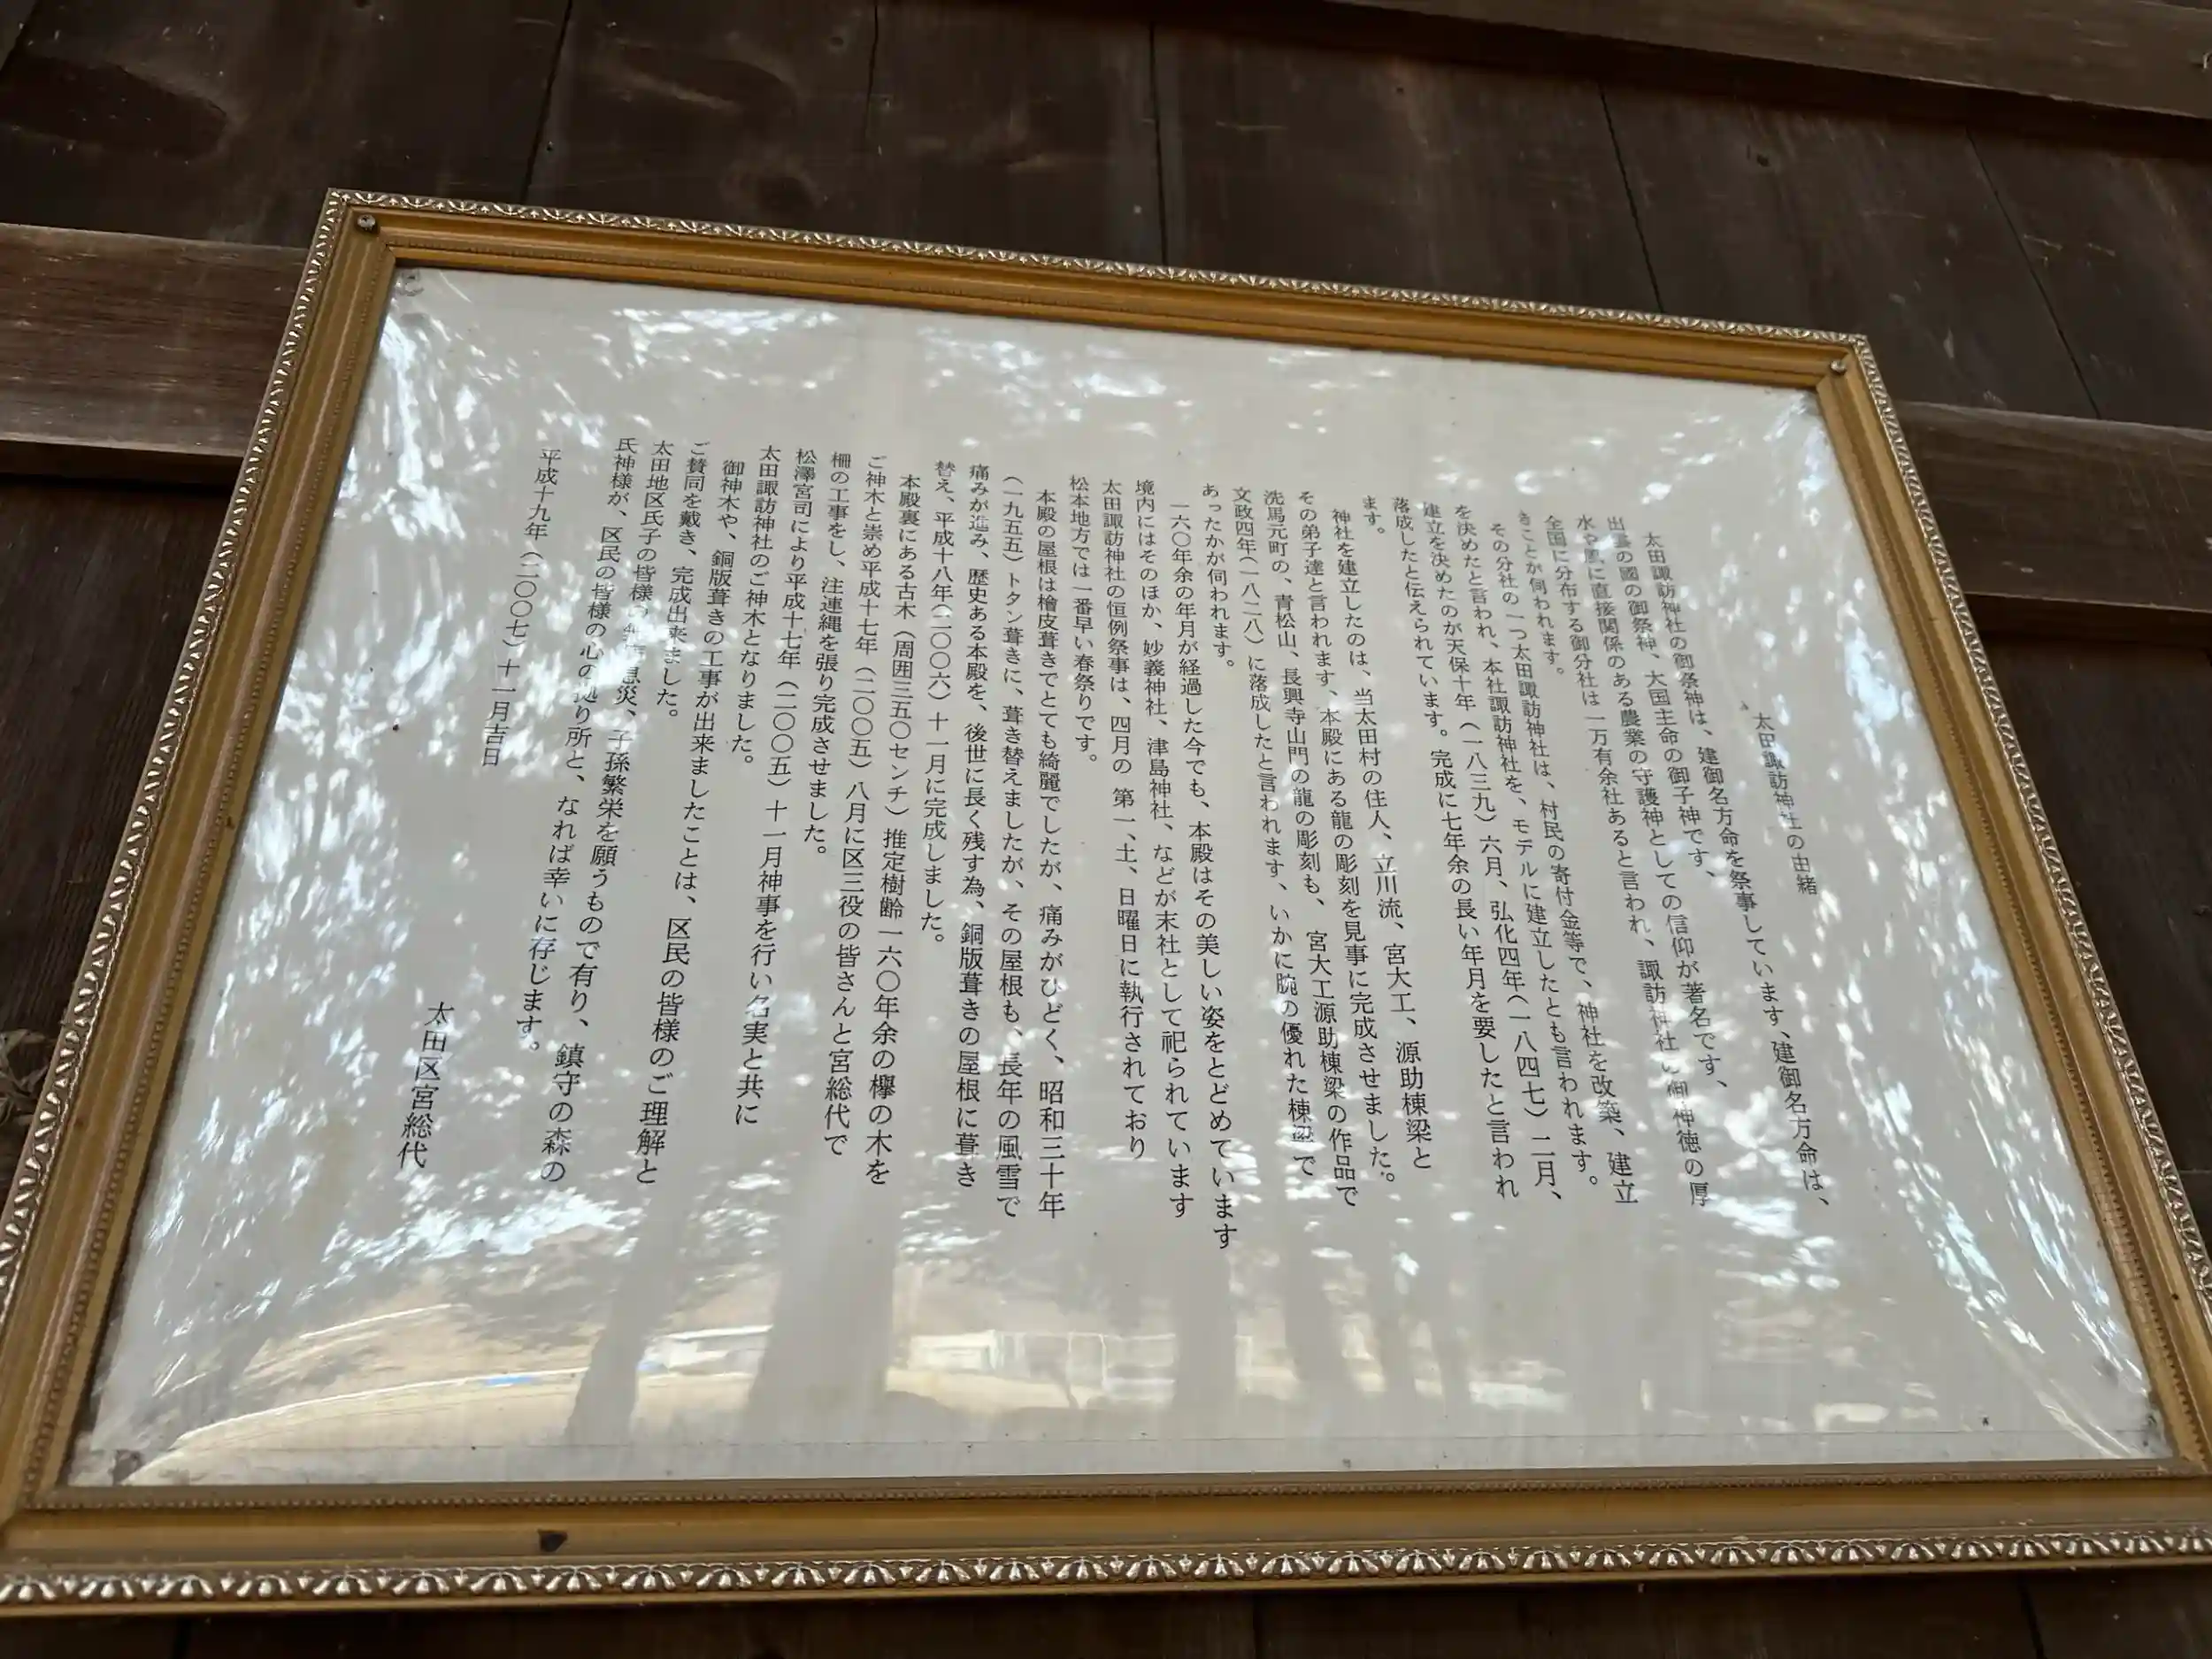 太田諏訪神社の由緒
太田諏訪神社の御祭神は、建御名方命を祭事しています、建御名方命は、
出雲の國の御祭神、大国主命の御子神です、
水や風に直接関係のある農業の守護神としての信仰が著名です、
全国に分布する御分社は一万有余社あると言われ、諏訪神社の御神徳の厚
きことが伺われます。
その分社の一つ太田諏訪神社は、村民の寄付金等で、神社を改築、建立
を決めたと言われ、本社諏訪神社を、モデルに建立したとも言われます。
建立を決めたのが天保十年（一八三九）六月、弘化四年（一八四七）二月、
落成したと伝えられています。完成に七年余の長い年月を要したと言われ
ます。
神社を建立したのは、当太田村の住人、立川流、宮大工、源助棟梁と
その弟子達と言われます、本殿にある龍の彫刻を見事に完成させました。
洗馬元町の、青松山、長興寺山門の龍の彫刻も、宮大工源助棟梁の作品で
文政四年（一八二八）に落成したと言われます、いかに腕の優れた棟梁で
あったかが伺われます。
一六〇年余の年月が経過した今でも、本殿はその美しい姿をとどめています
境内にはそのほか、妙義神社、津島神社、などが末社として祀られています
太田諏訪神社の恒例祭事は、四月の 第一、土、日曜日に執行されており
松本地方では一番早い春祭りです。
本殿の屋根は檜皮葺きでとても綺麗でしたが、痛みがひどく、昭和三十年
（一九五五）トタン葺きに、葺き替えましたが、その屋根も、長年の風雪で
痛みが進み、歴史ある本殿を、後世に長く残す為、銅版葺きの屋根に葺き
替え、平成十八年（二〇〇六）十一月に完成しました。
本殿裏にある古木（周囲三五〇センチ）推定樹齢一六〇年余の欅の木を
ご神木と崇め平成十七年（二〇〇五）八月に区三役の皆さんと宮総代で
柵の工事をし、注連縄を張り完成させました。
松澤宮司により平成十七年（二〇〇五）十一月神事を行い名実と共に
太田諏訪神社のご神木となりました。
御神木や、銅版葺きの工事が出来ましたことは、区民の皆様のご理解と
ご賛同を戴き、完成出来ました。
太田地区氏子の皆様の 息災、子孫繁栄を願うもので有り、鎮守の森の
氏神様が、区民の皆様の心の拠り所と、なれば幸いに存じます。
平成十九年（二〇〇七）十一月吉日
太田区宮総代